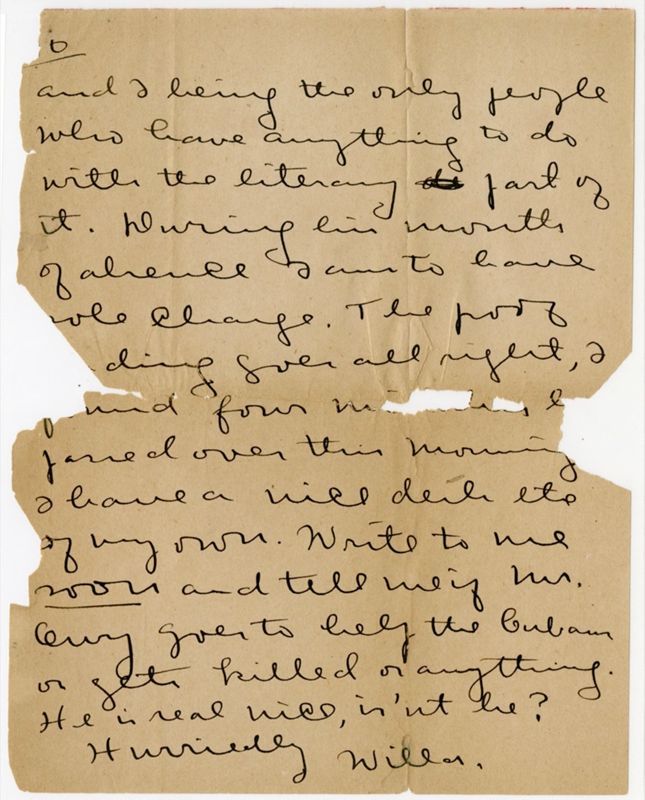 6
and I being the only people
who have anything to do
with the literary part of
it. During his months
of absence I am to have
sole charge. The proof
ding goes all right, I
found four
passed over this morning
I have a nice desk etc
of my own. Write to me
soon and tell me if Mr.
goes to help the Cubans
or gets killed or anything.
He is real nice, is'nt he?
Hurriedly Willa.